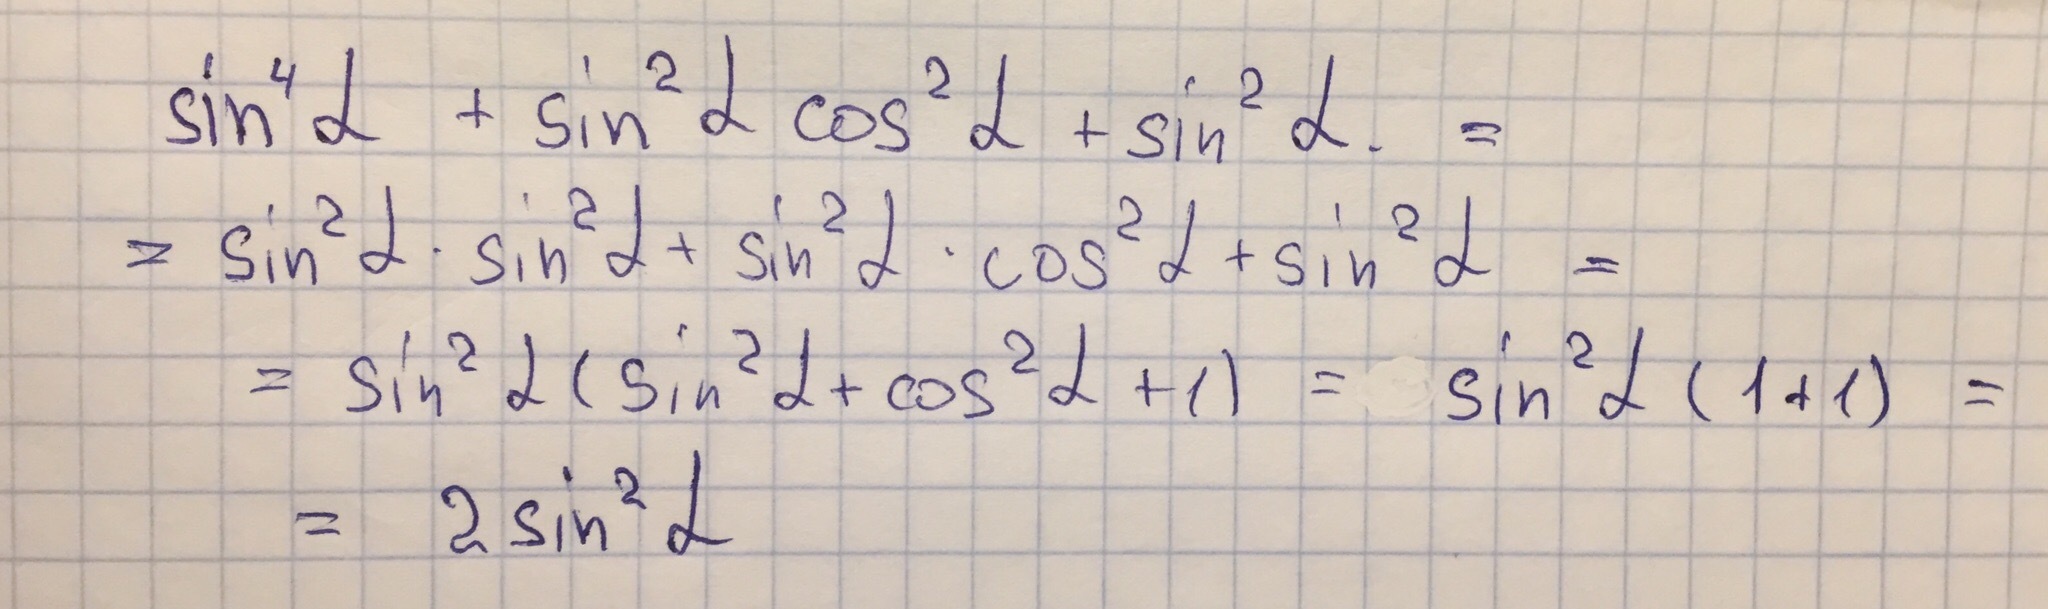 sin⁴α + sin²α cos²α + sin²α. =
= sin²α · sin²α + sin²α · cos²α + sin²α =
= sin²α (sin²α + cos²α + 1) = sin²α (1+1) =
= 2 sin²α